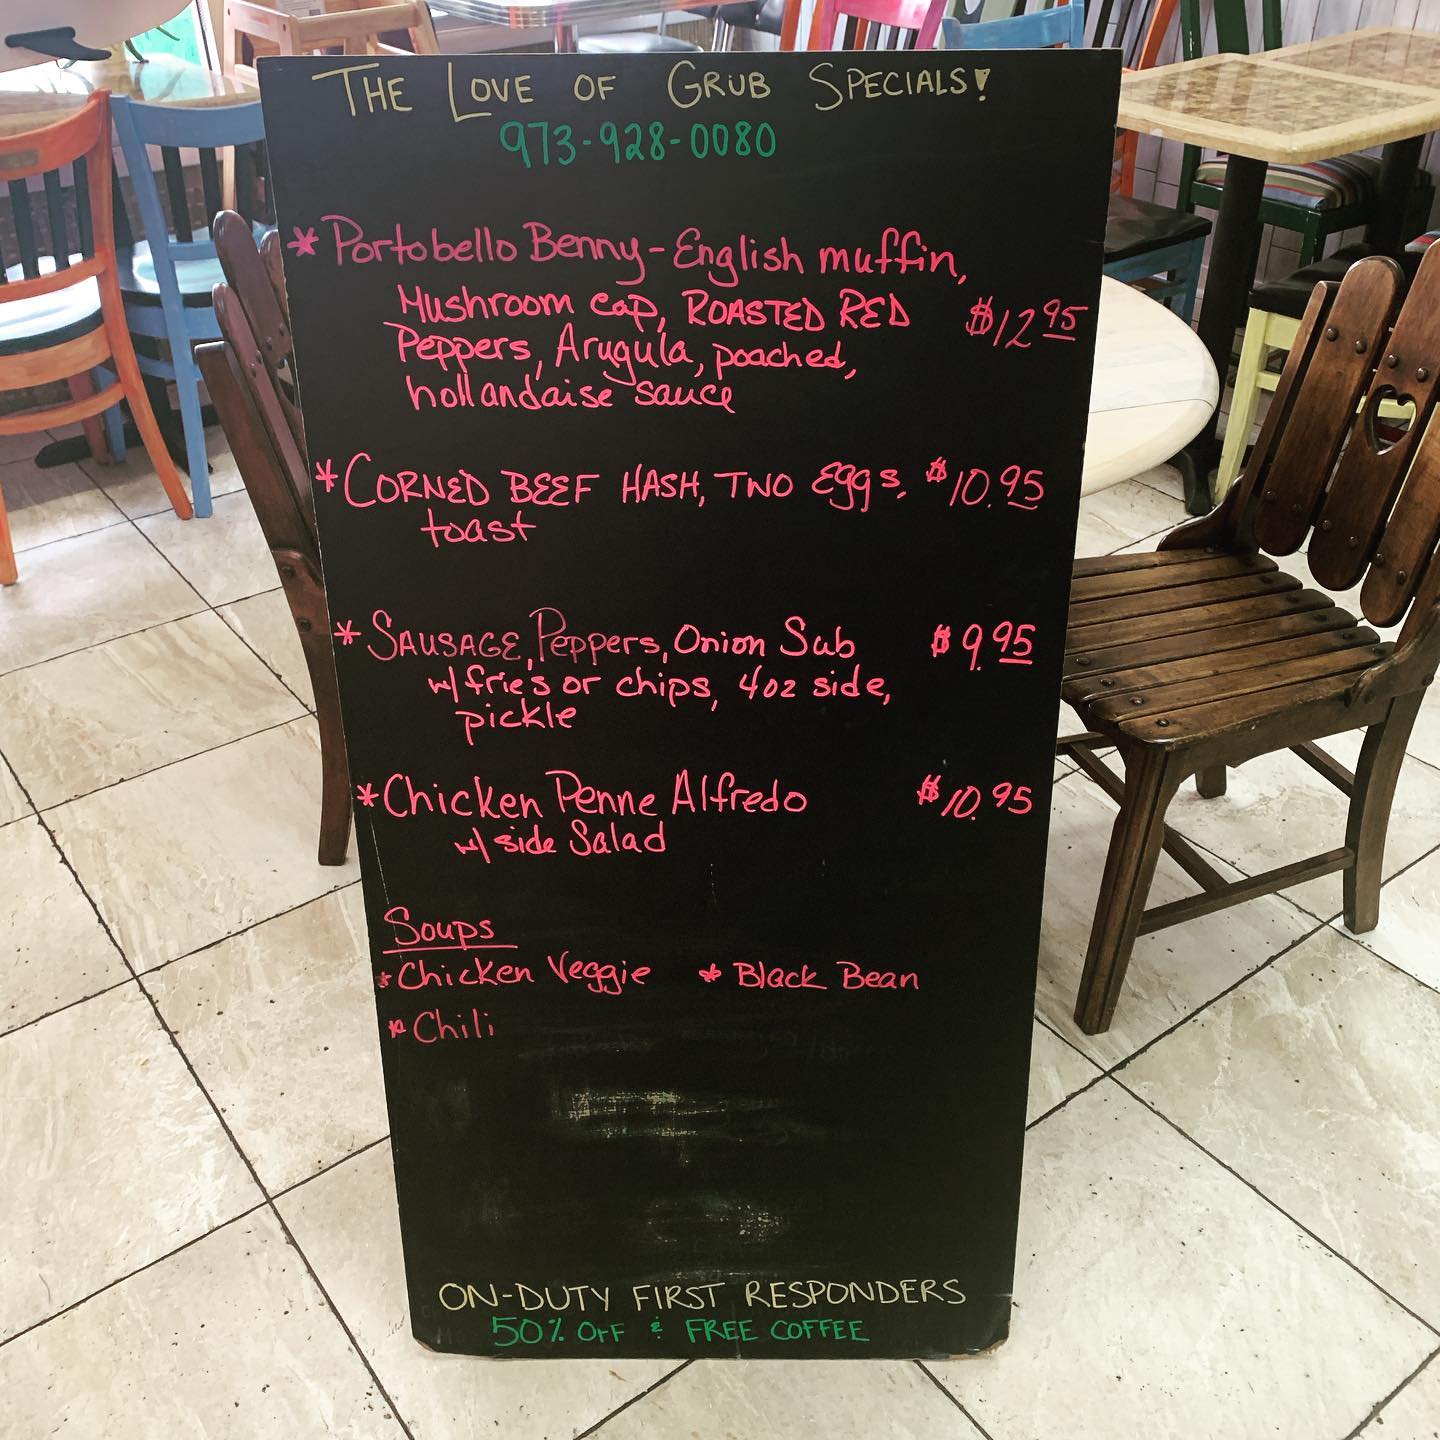 THE LOVE OF GRUB SPECIALS!
973-928-0080
* Portobello Benny - English muffin,
Mushroom cap, ROASTED RED $12 95
Peppers, Arugula, poached,
hollandaise sauce
* CORNED BEEF HASH, TWO Eggs, $10.95
toast
* SAUSAGE, Peppers, Onion Sub $9.95
w/ fries or chips, 4oz side,
pickle
* Chicken Penne Alfredo $10.95
w/ side Salad
Soups
* Chicken Veggie * Black Bean
* Chili
ON-DUTY FIRST RESPONDERS
50% OFF & FREE COFFEE